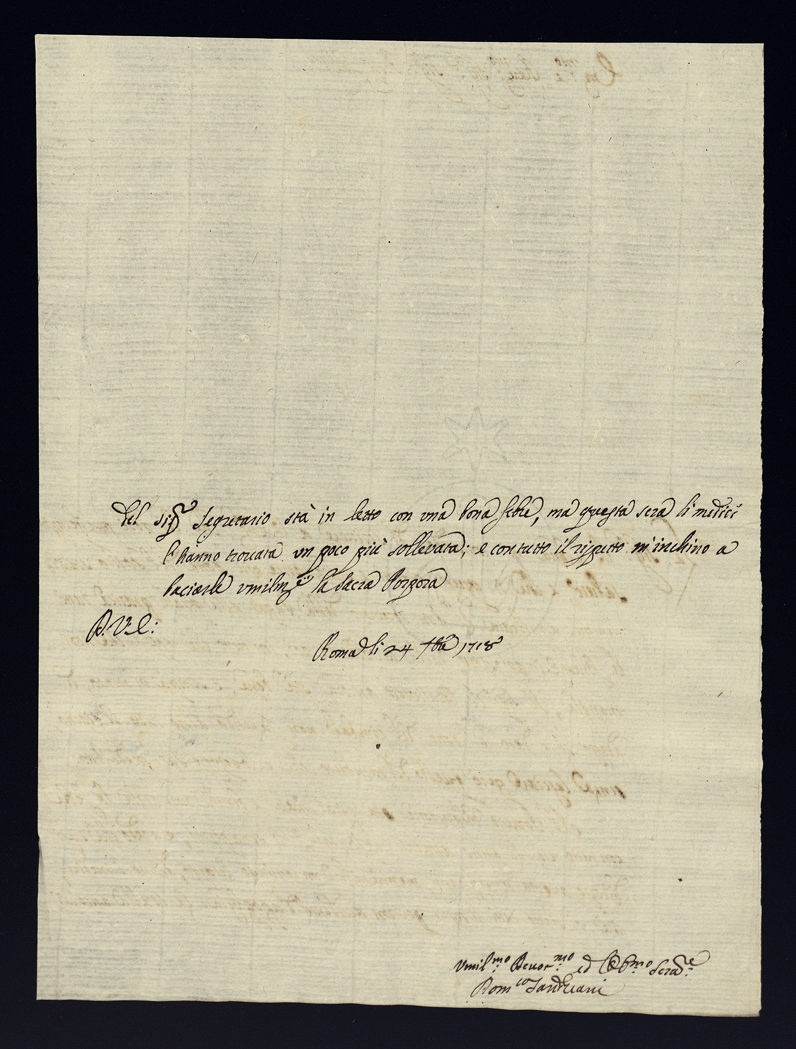 del sig.re Segretario stà in letto con una bona febre, ma questa sera li medici
l'hanno trovata un poco più sollevata; e con tutto il rispetto m'inchino a
baciarle umilm.te la Sacra Porpora
Roma li 24 7bre 1718
Umil.mo Devot.mo ed Obb.mo Serv.re
Dom.co